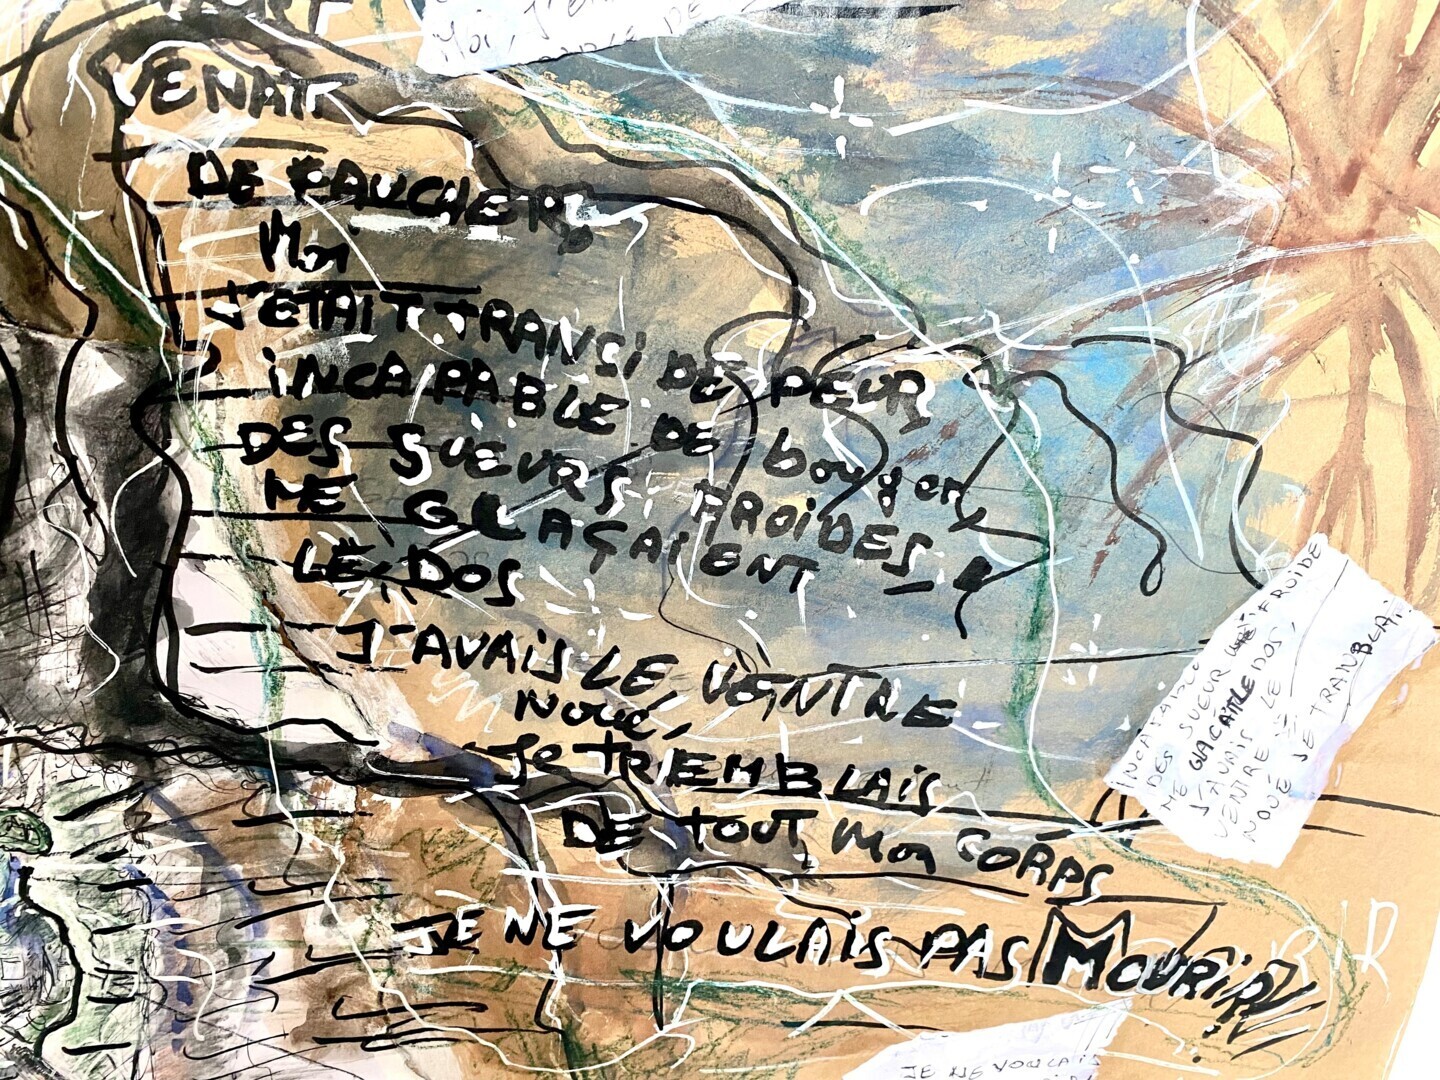 VENAIT
DE FAUCHER,
Moi
J'ETAIT TRANSi DE PEUR
iNCAPABLE DE bouger
DES SUEURS FROiDES
ME GLAÇAIENT
LE DOS
J'AVAiS LE VENTRE
Noué,
Je TREMBLAiS
DE TOUT Mon CORPS
JE NE VOULAiS PAS MOURiR
FROIDE
DES SUEUR
ME GLACAIT LE DOS,
J'AVAIS LE
VENTRE
NOUÉ JE TRANBLAI
JE NE VOULAIS